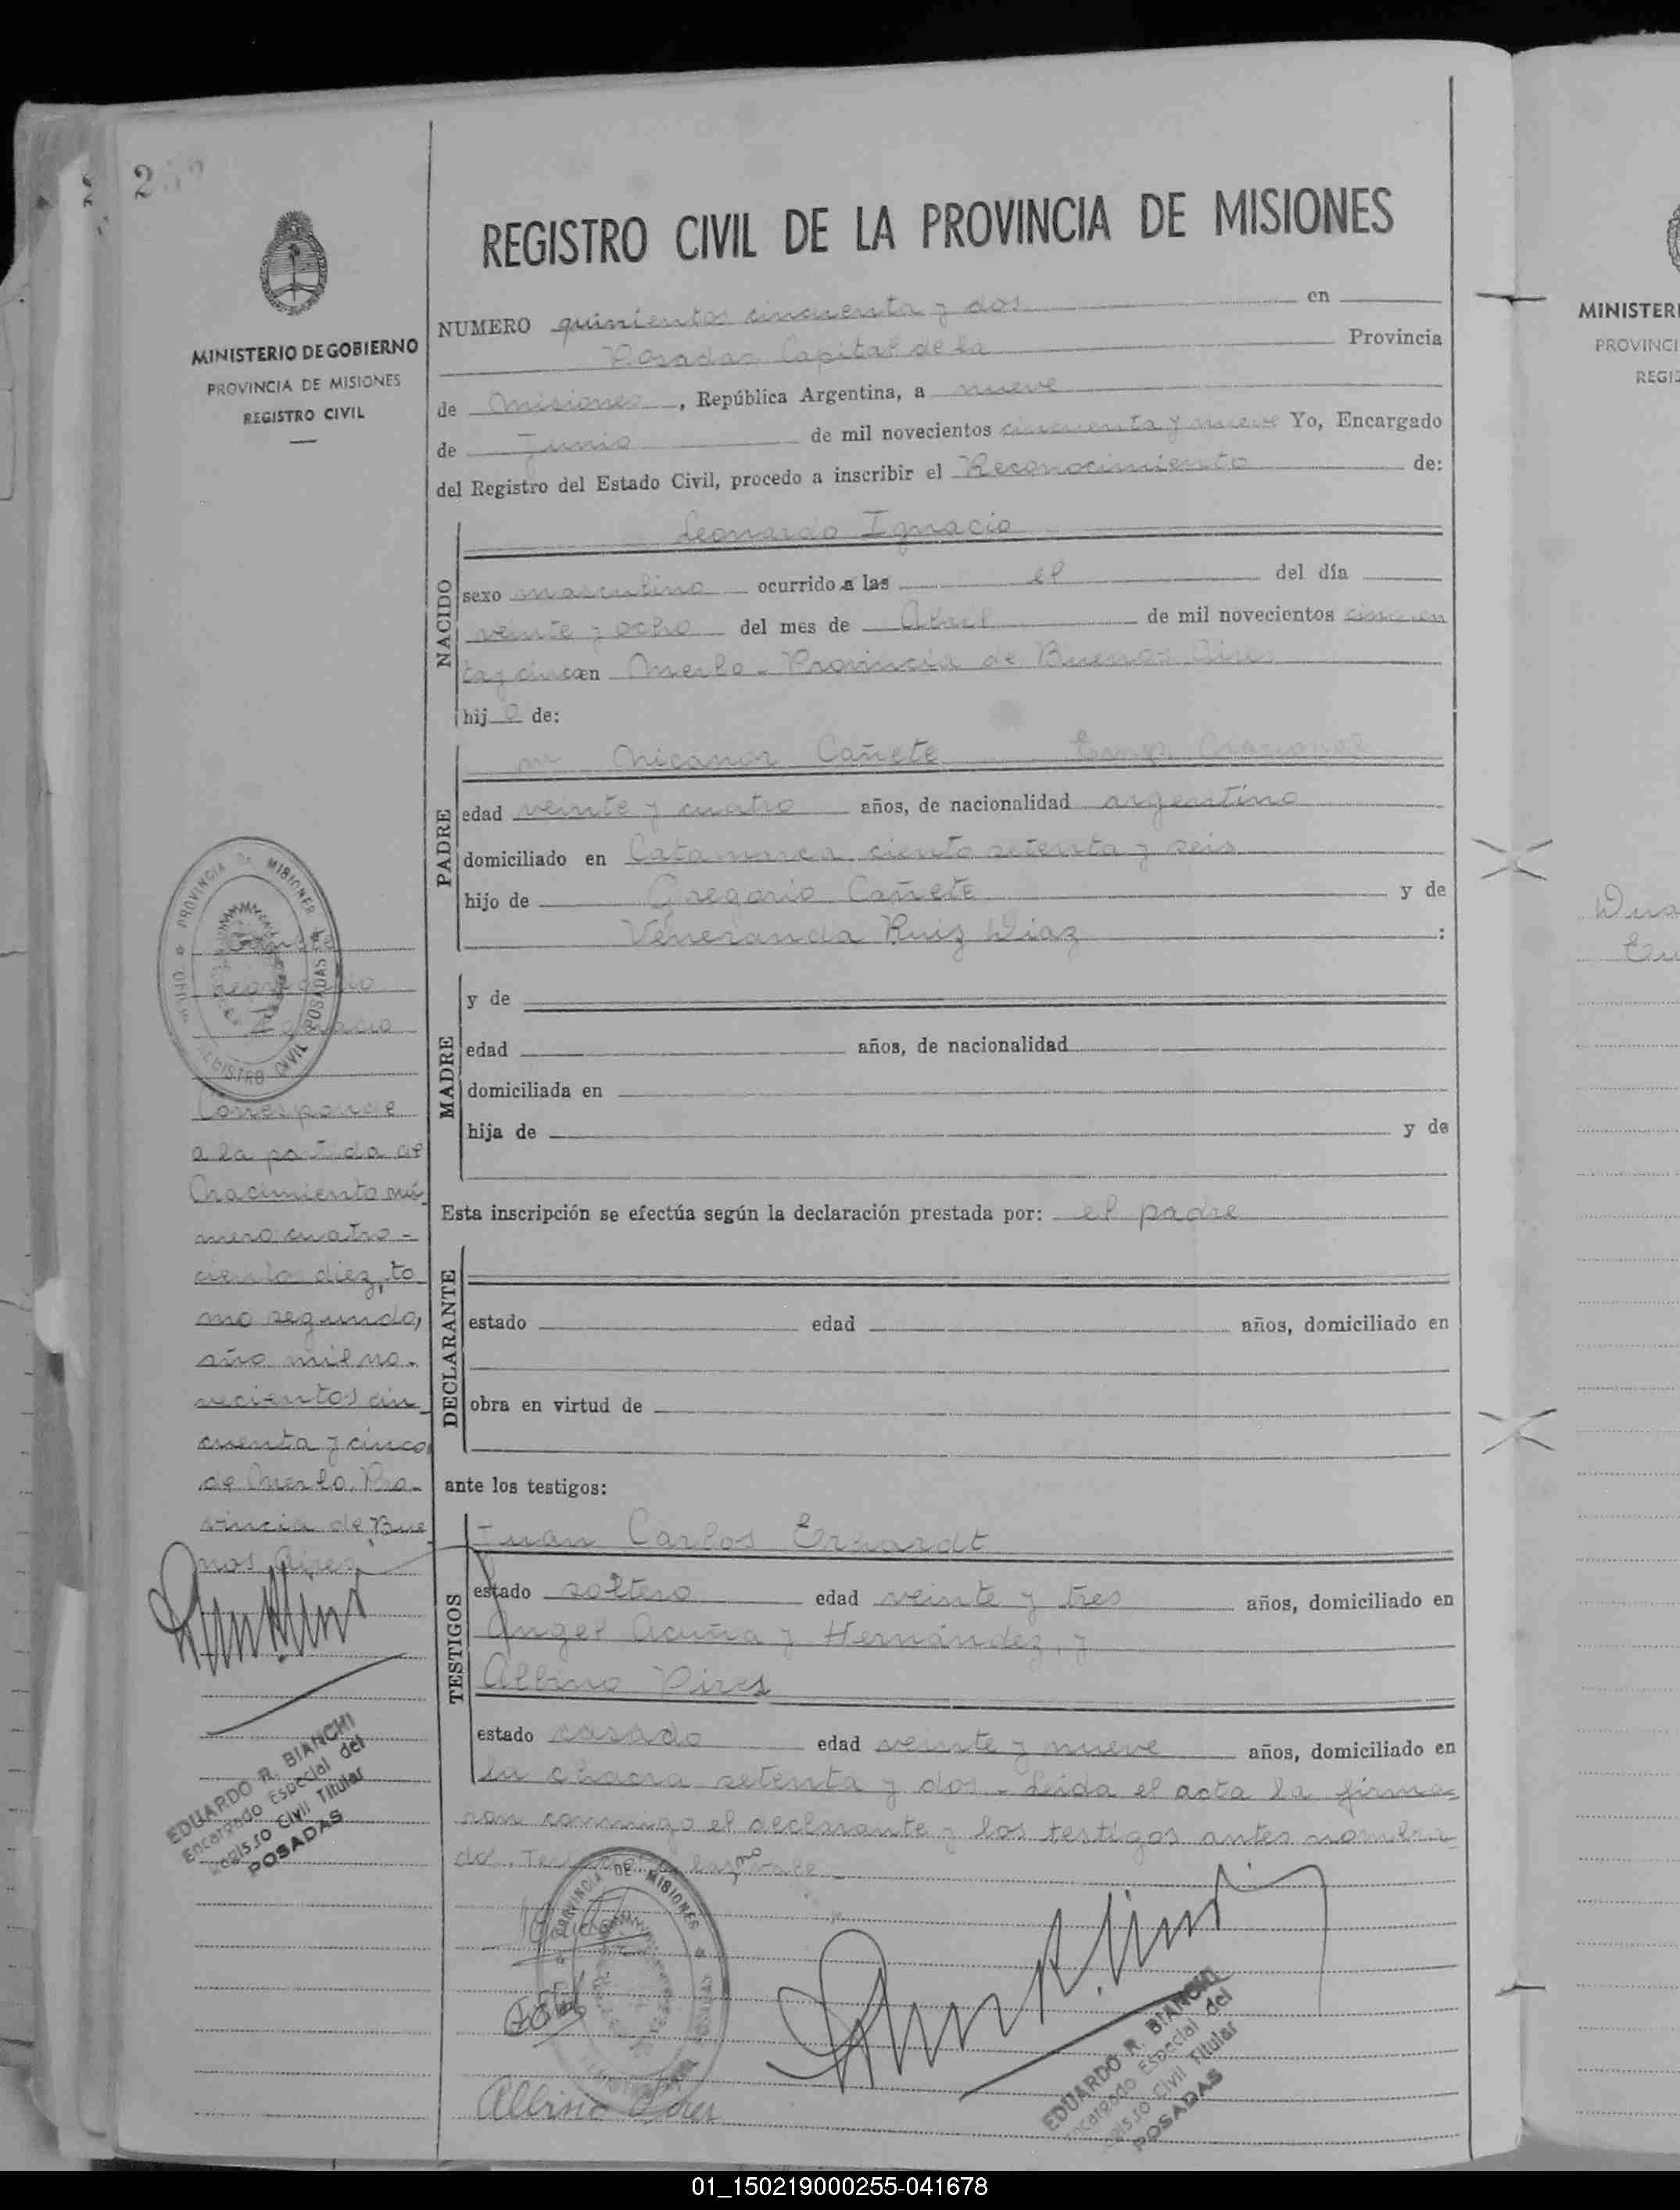 REGISTRO CIVIL DE LA PROVINCIA DE MISIONES
MINISTERIO DE GOBIERNO
PROVINCIA DE MISIONES
REGISTRO CIVIL
NUMERO quinientos cincuenta y dos en
Posadas Capital de la Provincia
de Misiones, República Argentina, a nueve
de Junio de mil novecientos cincuenta y nueve Yo, Encargado
del Registro del Estado Civil, procedo a inscribir el Reconocimiento de:
NACIDO
Leonardo Ignacio
sexo masculino ocurrido a las el del día
veinte y ocho del mes de Abril de mil novecientos cincuen
ta y cinco en Merlo - Provincia de Buenos Aires
hij o de:
PADRE
Nicanor Cañete Emp. Nacional
edad veinte y cuatro años, de nacionalidad argentino
domiciliado en Catamarca ciento setenta y seis
hijo de Gregorio Cañete y de
Veneranda Ruiz Diaz :
MADRE
y de
edad años, de nacionalidad
domiciliada en
hija de y de
Esta inscripción se efectúa según la declaración prestada por: el padre
DECLARANTE
estado edad años, domiciliado en
obra en virtud de
ante los testigos:
TESTIGOS
Juan Carlos Erhardt
estado soltero edad veinte y tres años, domiciliado en
Angel Acuña y Hernández, y
Albino Pires
estado casado edad veinte y nueve años, domiciliado en
la chacra setenta y dos - Leida el acta la firma-
ron conmigo el declarante y los testigos antes nombra
dos. vale
Cañete
Leonardo
Ignacio
Corresponde
a la partida de
Nacimiento nú-
mero cuatro-
cientos diez, to
mo segundo,
año mil no-
vecientos cin
cuenta y cinco,
de Merlo, Pro-
vincia de Bue
nos Aires.
EDUARDO R. BIANCHI
Encargado Especial del
Registro Civil Titular
POSADAS
PROVINCIA DE MISIONES
REGISTRO CIVIL POSADAS
PROVINCIA DE MISIONES
Albino Pires
EDUARDO R. BIANCHI
Encargado Especial del
Registro Civil Titular
POSADAS
MINISTERI
PROVINCI
REGIS
01_150219000255-041678